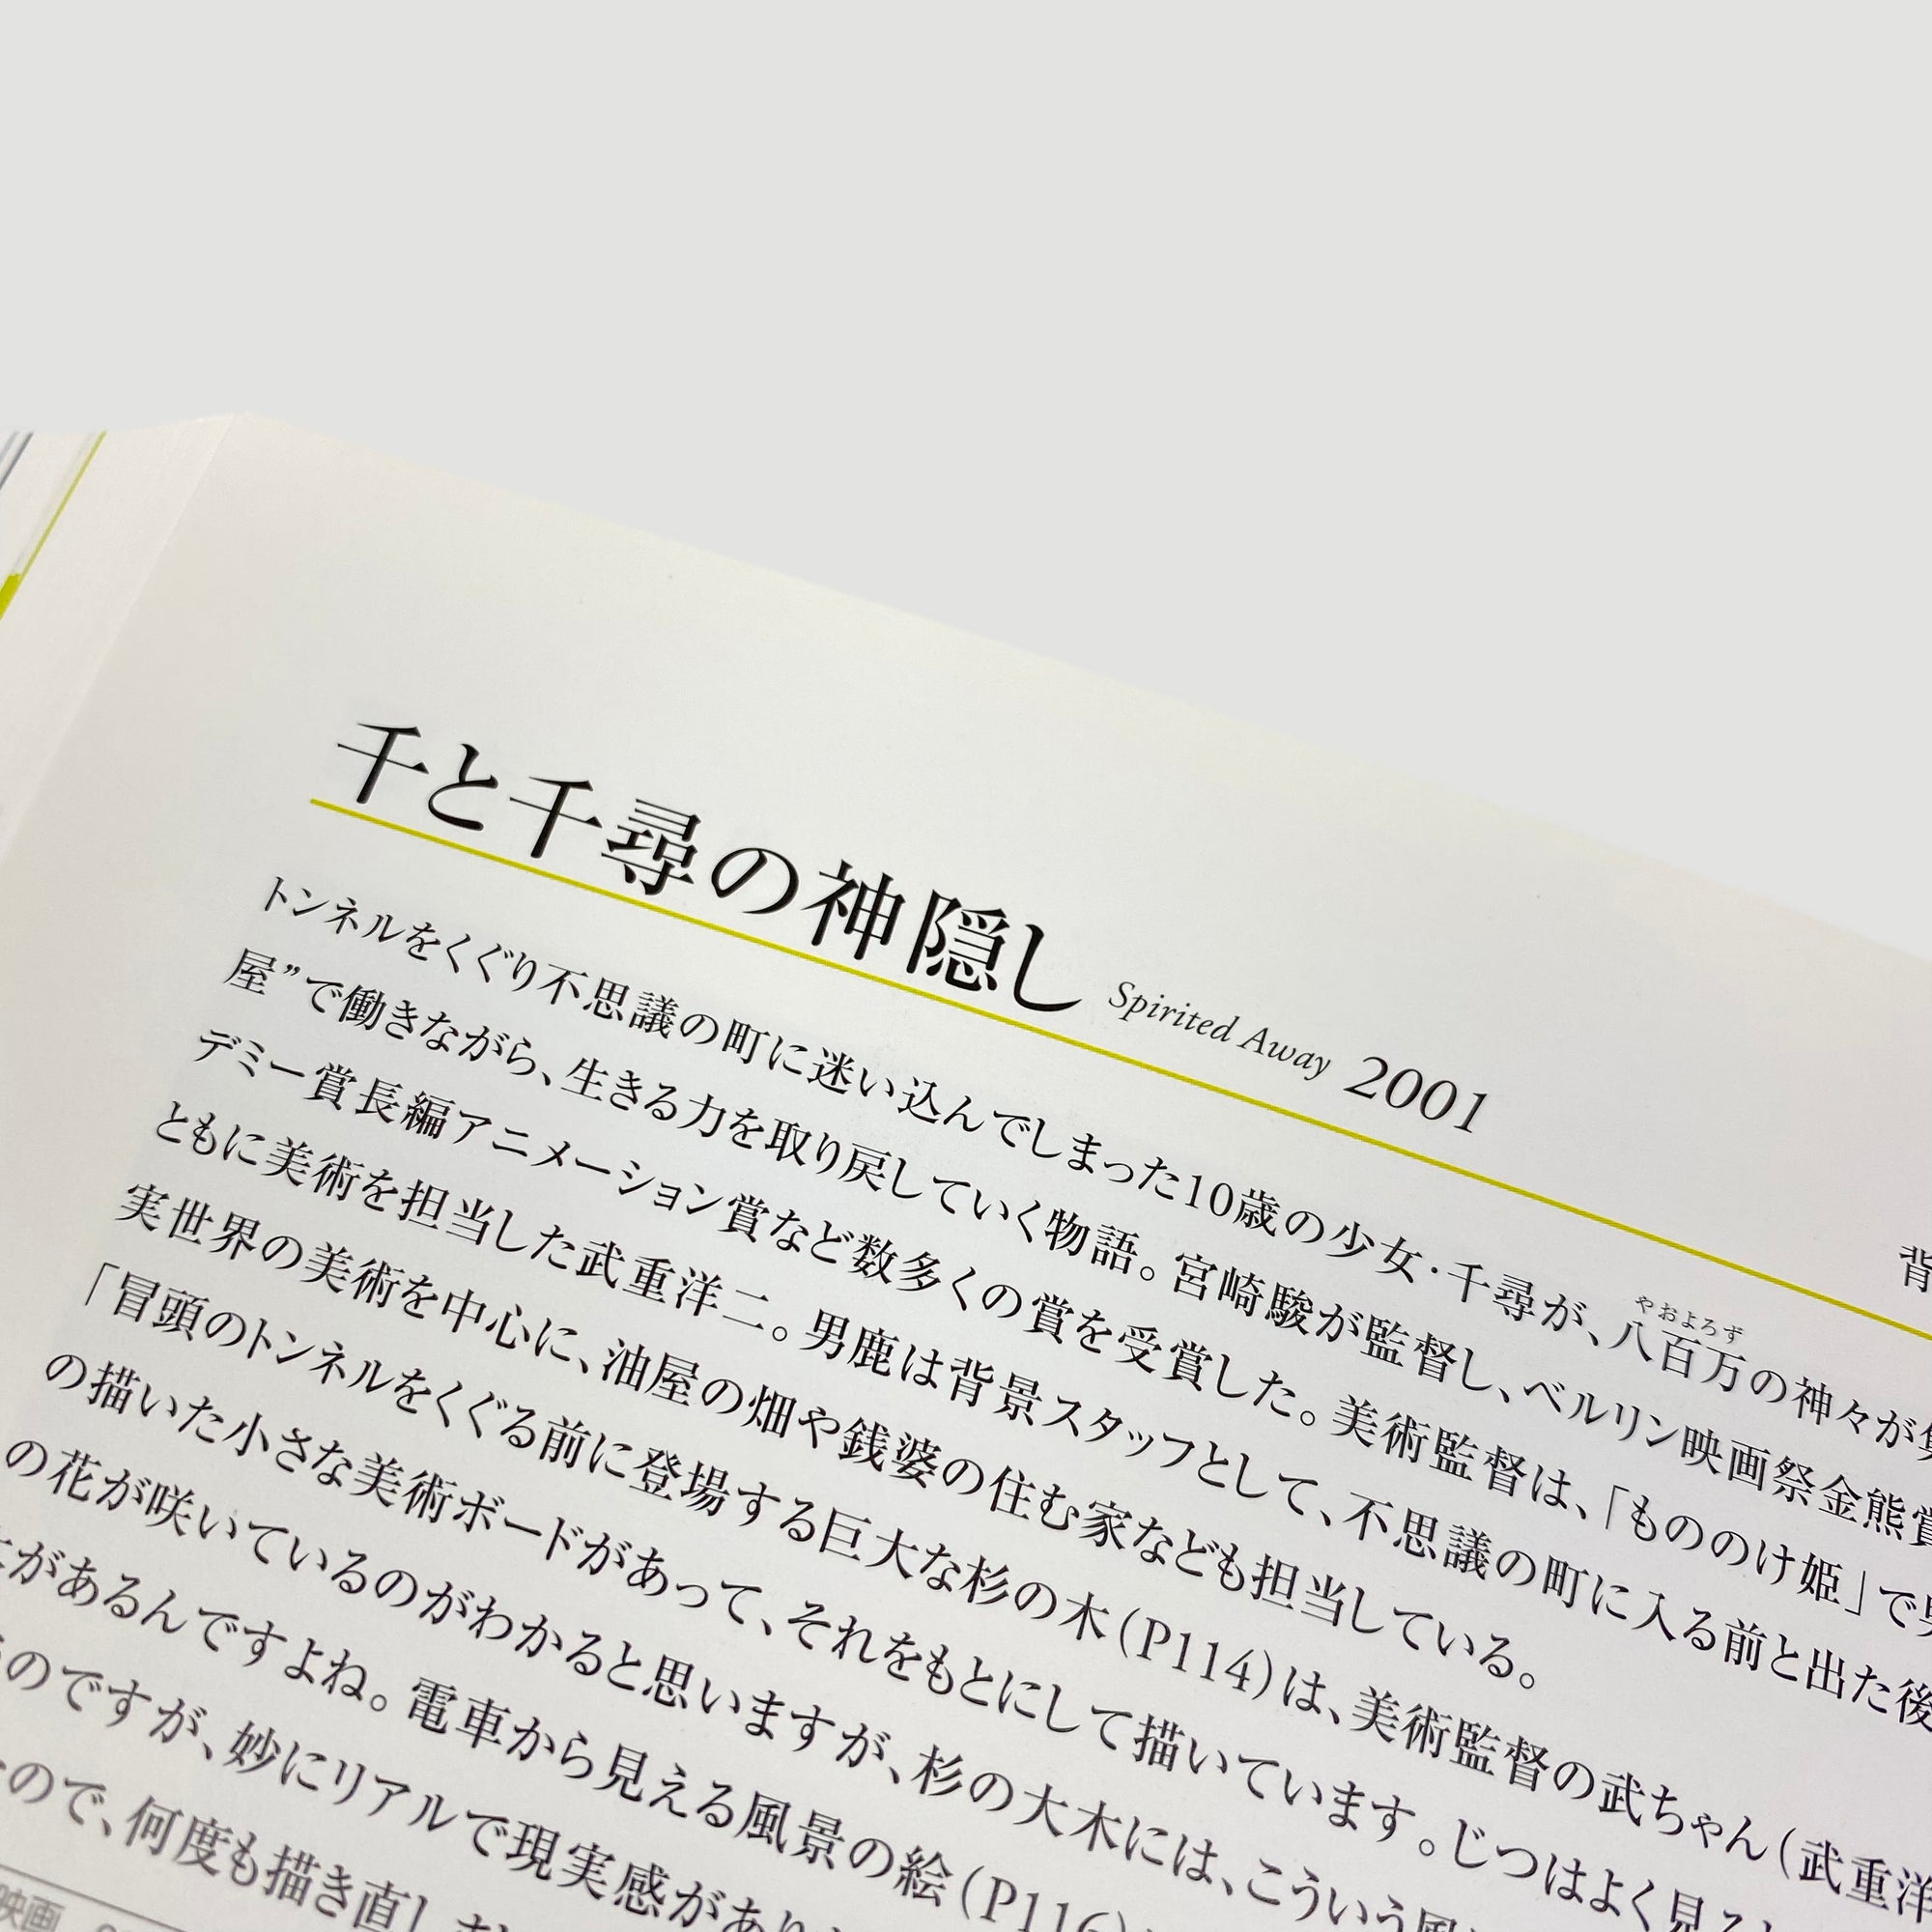 千と千尋の神隠し Spirited Away 2001
背
トンネルをくぐり不思議の町に迷い込んでしまった10歳の少女・千尋が、八百万の神々が集
やおよろず
屋”で働きながら、生きる力を取り戻していく物語。宮崎駿が監督し、ベルリン映画祭金熊賞
デミー賞長編アニメーション賞など数多くの賞を受賞した。美術監督は、「もののけ姫」で男
ともに美術を担当した武重洋二。男鹿は背景スタッフとして、不思議の町に入る前と出た後
実世界の美術を中心に、油屋の畑や銭婆の住む家なども担当している。
「冒頭のトンネルをくぐる前に登場する巨大な杉の木（P114）は、美術監督の武ちゃん（武重洋
の描いた小さな美術ボードがあって、それをもとにして描いています。じつはよく見ると
の花が咲いているのがわかると思いますが、杉の大木には、こういう風
があるんですよね。電車から見える風景の絵（P116）
のですが、妙にリアルで現実感があり
ので、何度も描き直し
映画